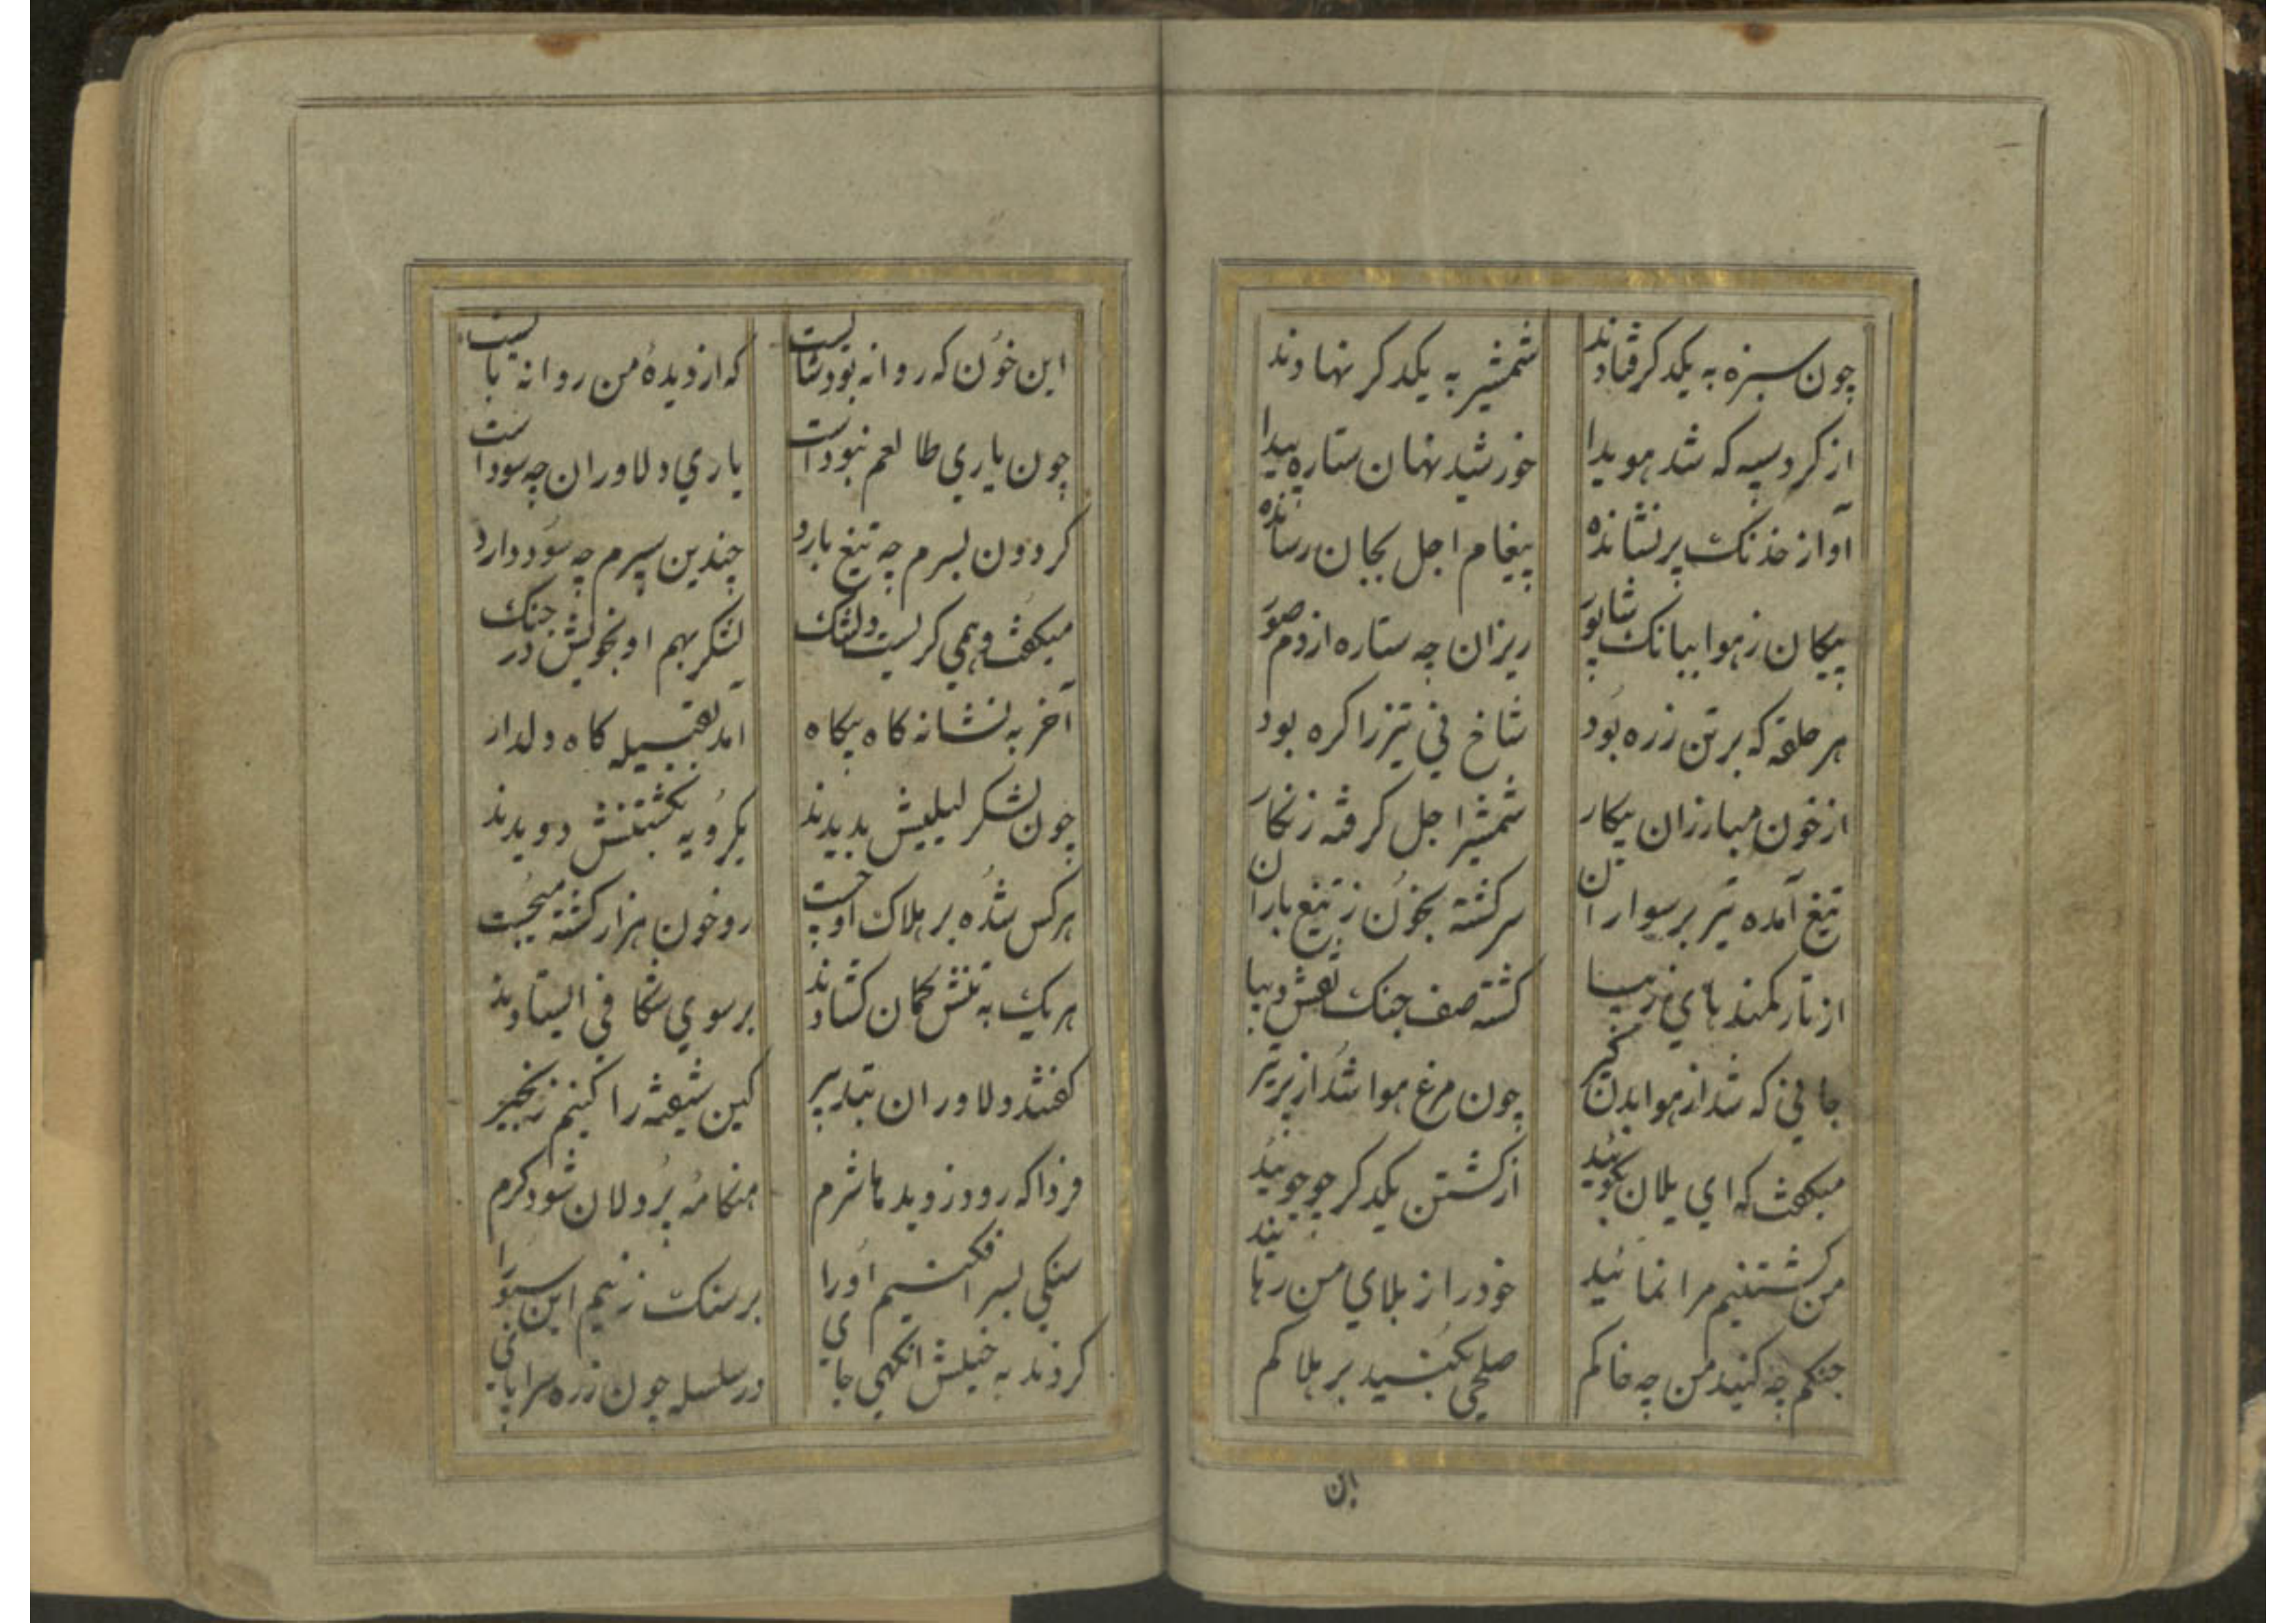 چون سبزه به یکدکر فتادند شمشیر به یکدکر نهادند
از کرد سیه که شد هویدا خورشید نهان ستاره پیدا
آواز خدنک پر نشانده پیغام اجل بجان رسانده
پیکان ز هوا ببانک شاپور ریزان چه ستاره از دم صور
هر حلقه که بر تن زره بود شاخ نی تیز را کره بود
از خون مبارزان پیکار شمشیر اجل کرفته زنکار
تیغ آمده تیز بر سواران سرکشته بخون ز تیغ باران
از تار کمندهای زیبا کشته صف جنک نقش دیبا
جانی که شد از هوا بدن کیر چون مرغ هوا شد از پر تیر
میکفت که ای یلان بکوئید از کشتن یکدکر چو جوئید
من کشتنیم مرا نمائید خود را ز بلای من رهائید
جنکم چه کنید من چه خاکم صلحی بکنید بر هلاکم
این
این خون که روانه بود شایست که از دیده من روانه بایست
چون یاری طالعم نبوداست یاری دلاوران چه سوداست
کردون بسرم چه تیغ بارد چندین سپرم چه سود دارد
میکفت و همی کریست دلتنک لشکر بهم او بخویش در جنک
آخر به نشانه کاه بیکاه آمد بقبیله کاه دلدار
چون لشکر لیلیش بدیدند یکرویه بکشتنش دویدند
هر کس شده بر هلاک او چست رو خون هزار کشته میجست
هر یک به تنش کمان کشادند بر سوی شکافی ایستادند
کفتند دلاوران بتدبیر کین شیفته را کنیم زنجیر
فردا که رود ز دیدها شرم هنکامه پردلان شود کرم
سنکی بسر افکنیم او را بر سنک زنیم این سبو را
کردند به خیلش انکهی جای در سلسله چون زره سراپای